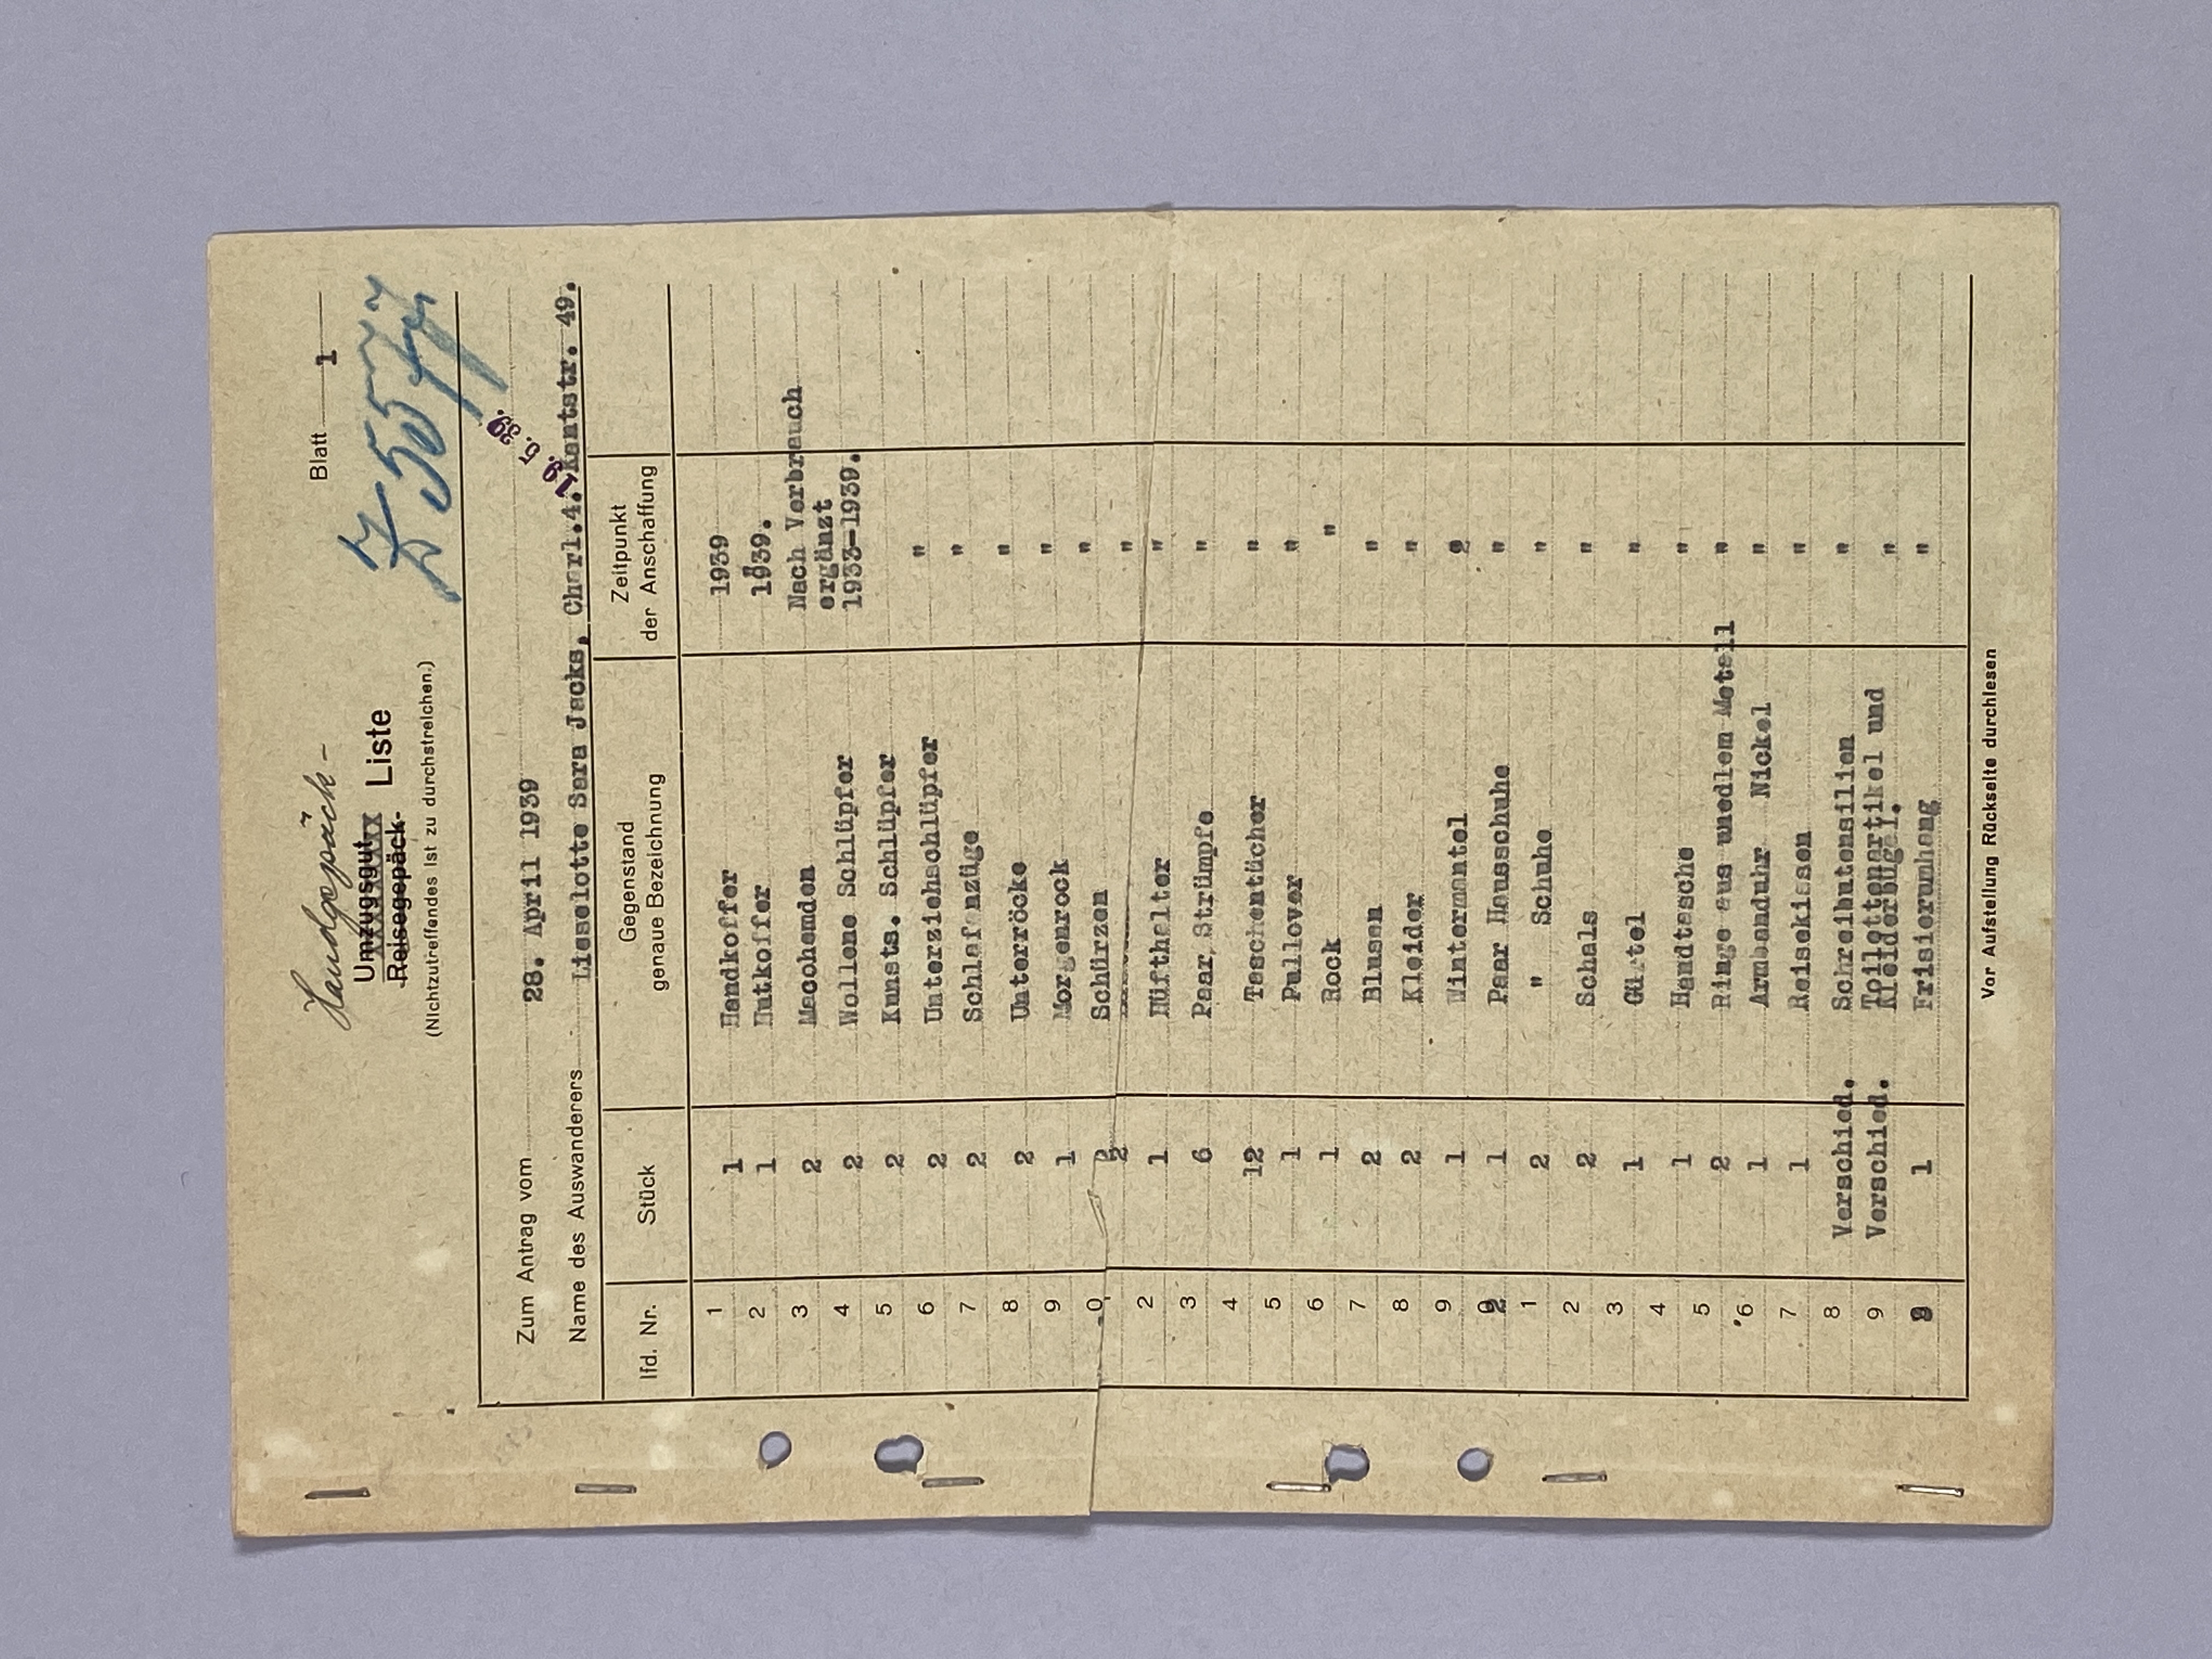 Blatt 1
Handgepäck-
Umzugsgut-xx
Reisegepäck- Liste
(Nichtzutreffendes ist zu durchstreichen.)
19. 5. 39.
Zum Antrag vom 28. April 1939
Name des Auswanderers Lieselotte Sara Jacks, Charl.4. Kantstr. 49.
lfd. Nr. Stück Gegenstand genaue Bezeichnung Zeitpunkt der Anschaffung
1 1 Handkoffer 1939
2 1 Hutkoffer 1939.
3 2 Macohemden Nach Verbrauch
ergänzt
4 2 Wollene Schlüpfer 1933-1939.
5 2 Kunsts. Schlüpfer
6 2 Unterziehschlüpfer "
7 2 Schlafanzüge "
8 2 Unterröcke "
9 1 Morgenrock "
0 2 Schürzen "
2 "
2 1 Hüfthalter "
3 6 Paar Strümpfe "
4 12 Taschentücher "
5 1 Pullover "
6 1 Rock "
7 2 Blusen "
8 2 Kleider "
9 1 Wintermantel "
1 Paar Hausschuhe "
1 2 " Schuhe "
2 2 Schals "
3 1 Gürtel "
4 1 Handtasche "
5 2 Ringe aus unedlem Metall "
6 1 Armbanduhr Nickel "
7 1 Reisekissen "
8 Verschied. Schreibutensilien "
9 Verschied. Toilettenartikel und "
Kleiderbügel.
1 Frisierumhang "
Vor Aufstellung Rückseite durchlesen